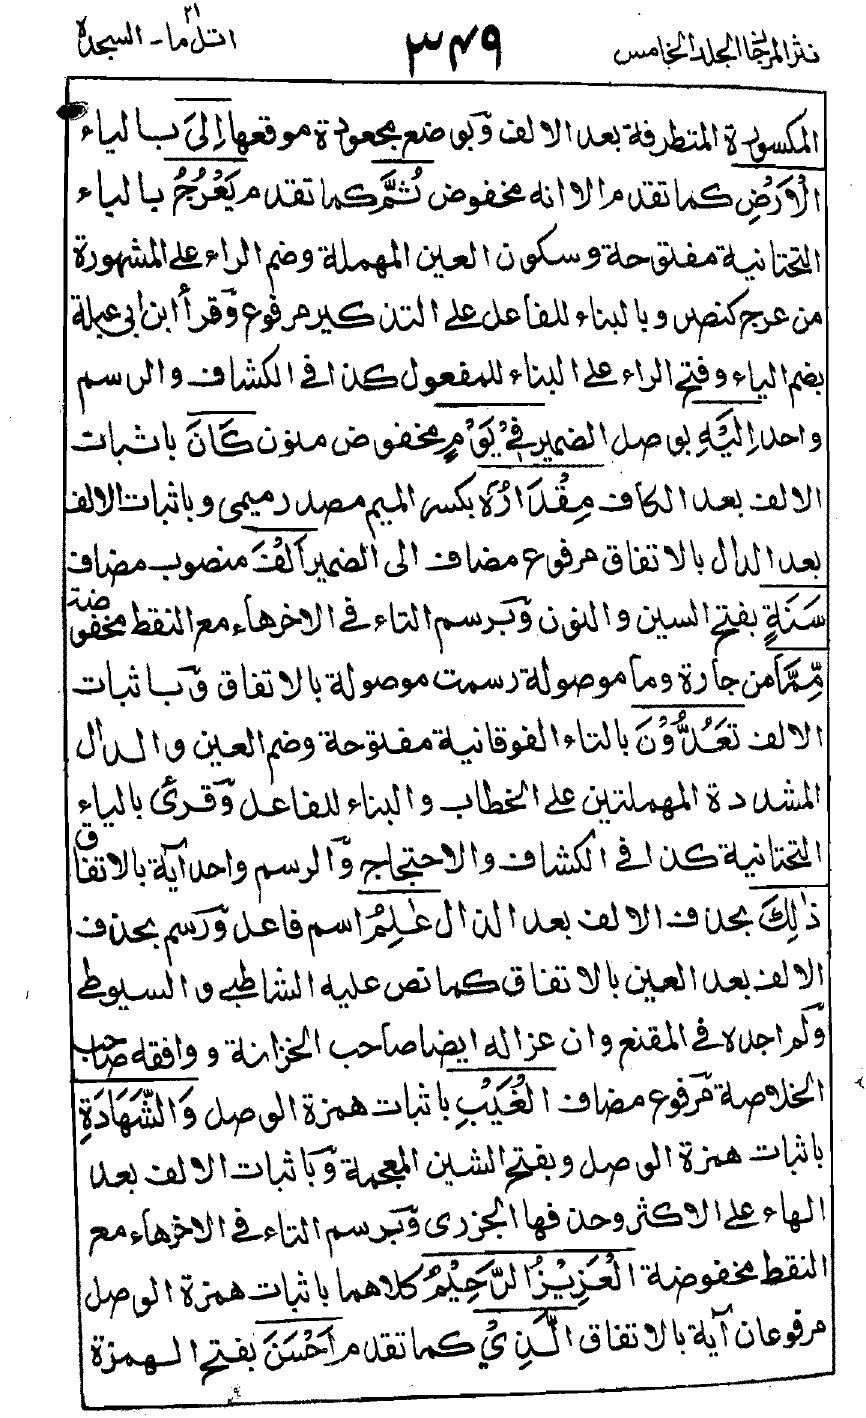 نثر المرجان المجلد الخامس
٣٤٩
اتل ما - السجدة
٢١
المكسورة المتطرفة بعد الالف وبوضع مجعودة موقعها اِلَى بالياء
الْاَرْضِ كما تقدم الا انه مخفوض ثُمَّ كما تقدم يَعْرُجُ بالياء
التحتانية مفتوحة وسكون العين المهملة وضم الراء على المشهورة
من عرج كنصر وبالبناء للفاعل على التذكير مرفوع وقرأ ابن ابى عبلة
بضم الياء وفتح الراء على البناء للمفعول كذا فى الكشاف والرسم
واحد اِلَيْهِ بوصل الضمير فِيْ يَوْمٍ مخفوض منون كَانَ باثبات
الالف بعد الكاف مِقْدَارُهٗ بكسر الميم مصدر ميمى وباثبات الالف
بعد الدال بالاتفاق مرفوع مضاف الى الضمير اَلْفَ منصوب مضاف
سَنَةٍ بفتح السين والنون وبرسم التاء فى الاخر هاء مع النقط مخفوضة
مِّمَّا من جارة وما موصولة رسمت موصولة بالاتفاق وباثبات
الالف تَعُدُّوْنَ بالتاء الفوقانية مفتوحة وضم العين والدال
المشددة المهملتين على الخطاب والبناء للفاعل وقرئ بالياء
التحتانية كذا فى الكشاف والاحتجاج والرسم واحد آية بالاتفاق
ذٰلِكَ بحذف الالف بعد الذال عٰلِمُ اسم فاعل ورسم بحذف
الالف بعد العين بالاتفاق كما نص عليه الشاطبي والسيوطي
ولم اجده فى المقنع وان عزاله ايضا صاحب الخزانة ووافقه صاحب
الخلاصة مرفوع مضاف الْغَيْبِ باثبات همزة الوصل وَالشَّهَادَةِ
باثبات همزة الوصل وبفتح الشين المعجمة وباثبات الالف بعد
الهاء على الاكثر وحذفها الجزرى وبرسم التاء فى الاخر هاء مع
النقط مخفوضة الْعَزِيْزُ الرَّحِيْمُ كلاهما باثبات همزة الوصل
مرفوعان آية بالاتفاق الَّذِيْ كما تقدم اَحْسَنَ بفتح الهمزة